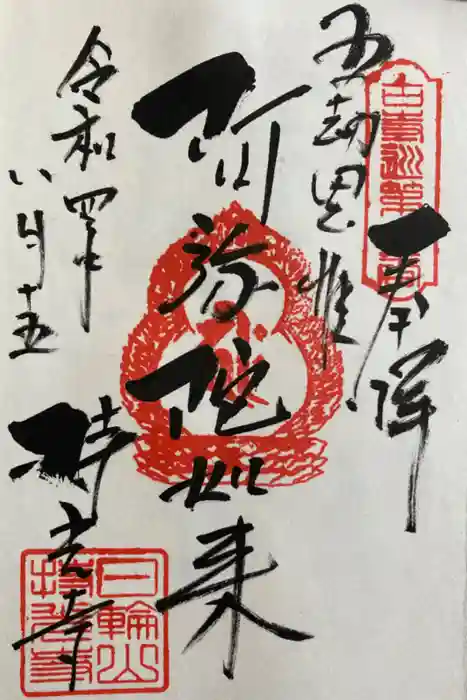 古寺巡第
奉拝
五劫思惟
阿弥陀如来
令和四年
八月十五
持光寺
日輪山
持光寺